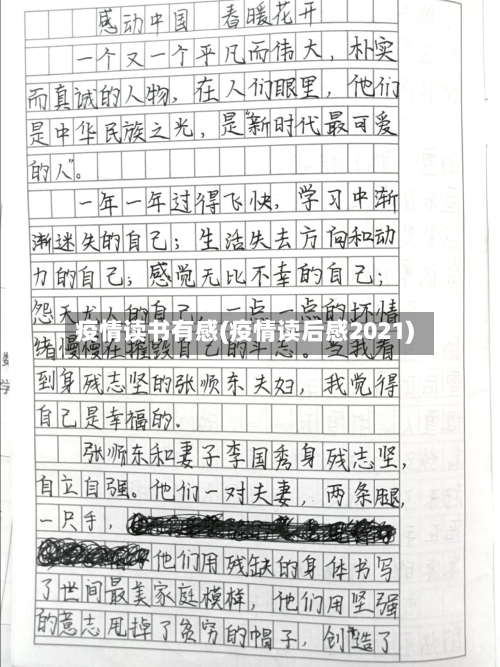 感动中国 春暖花开
一个又一个平凡而伟大，朴实
而真诚的人物，在人们眼里，他们
是中华民族之光，是"新时代最可爱
的人"。
一年一年过得飞快，学习中渐
渐迷失的自己；生活失去方向和动
力的自己；感觉无比不幸的自己；
怨天尤人的自己，一点一点的坏情
疫情读书有感(疫情读后感2021)
绪慢慢在摧毁自己的斗志。当我看
到身残志坚的张顺东夫妇，我觉得
自己是幸福的.
张顺东和妻子李国秀身残志坚，
自立自强。他们一对夫妻，两条腿，
一只手，
他们用残缺的身体书写
了世间最美家庭模样，他们用坚强
的意志甩掉了贫穷的帽子，创造了
学